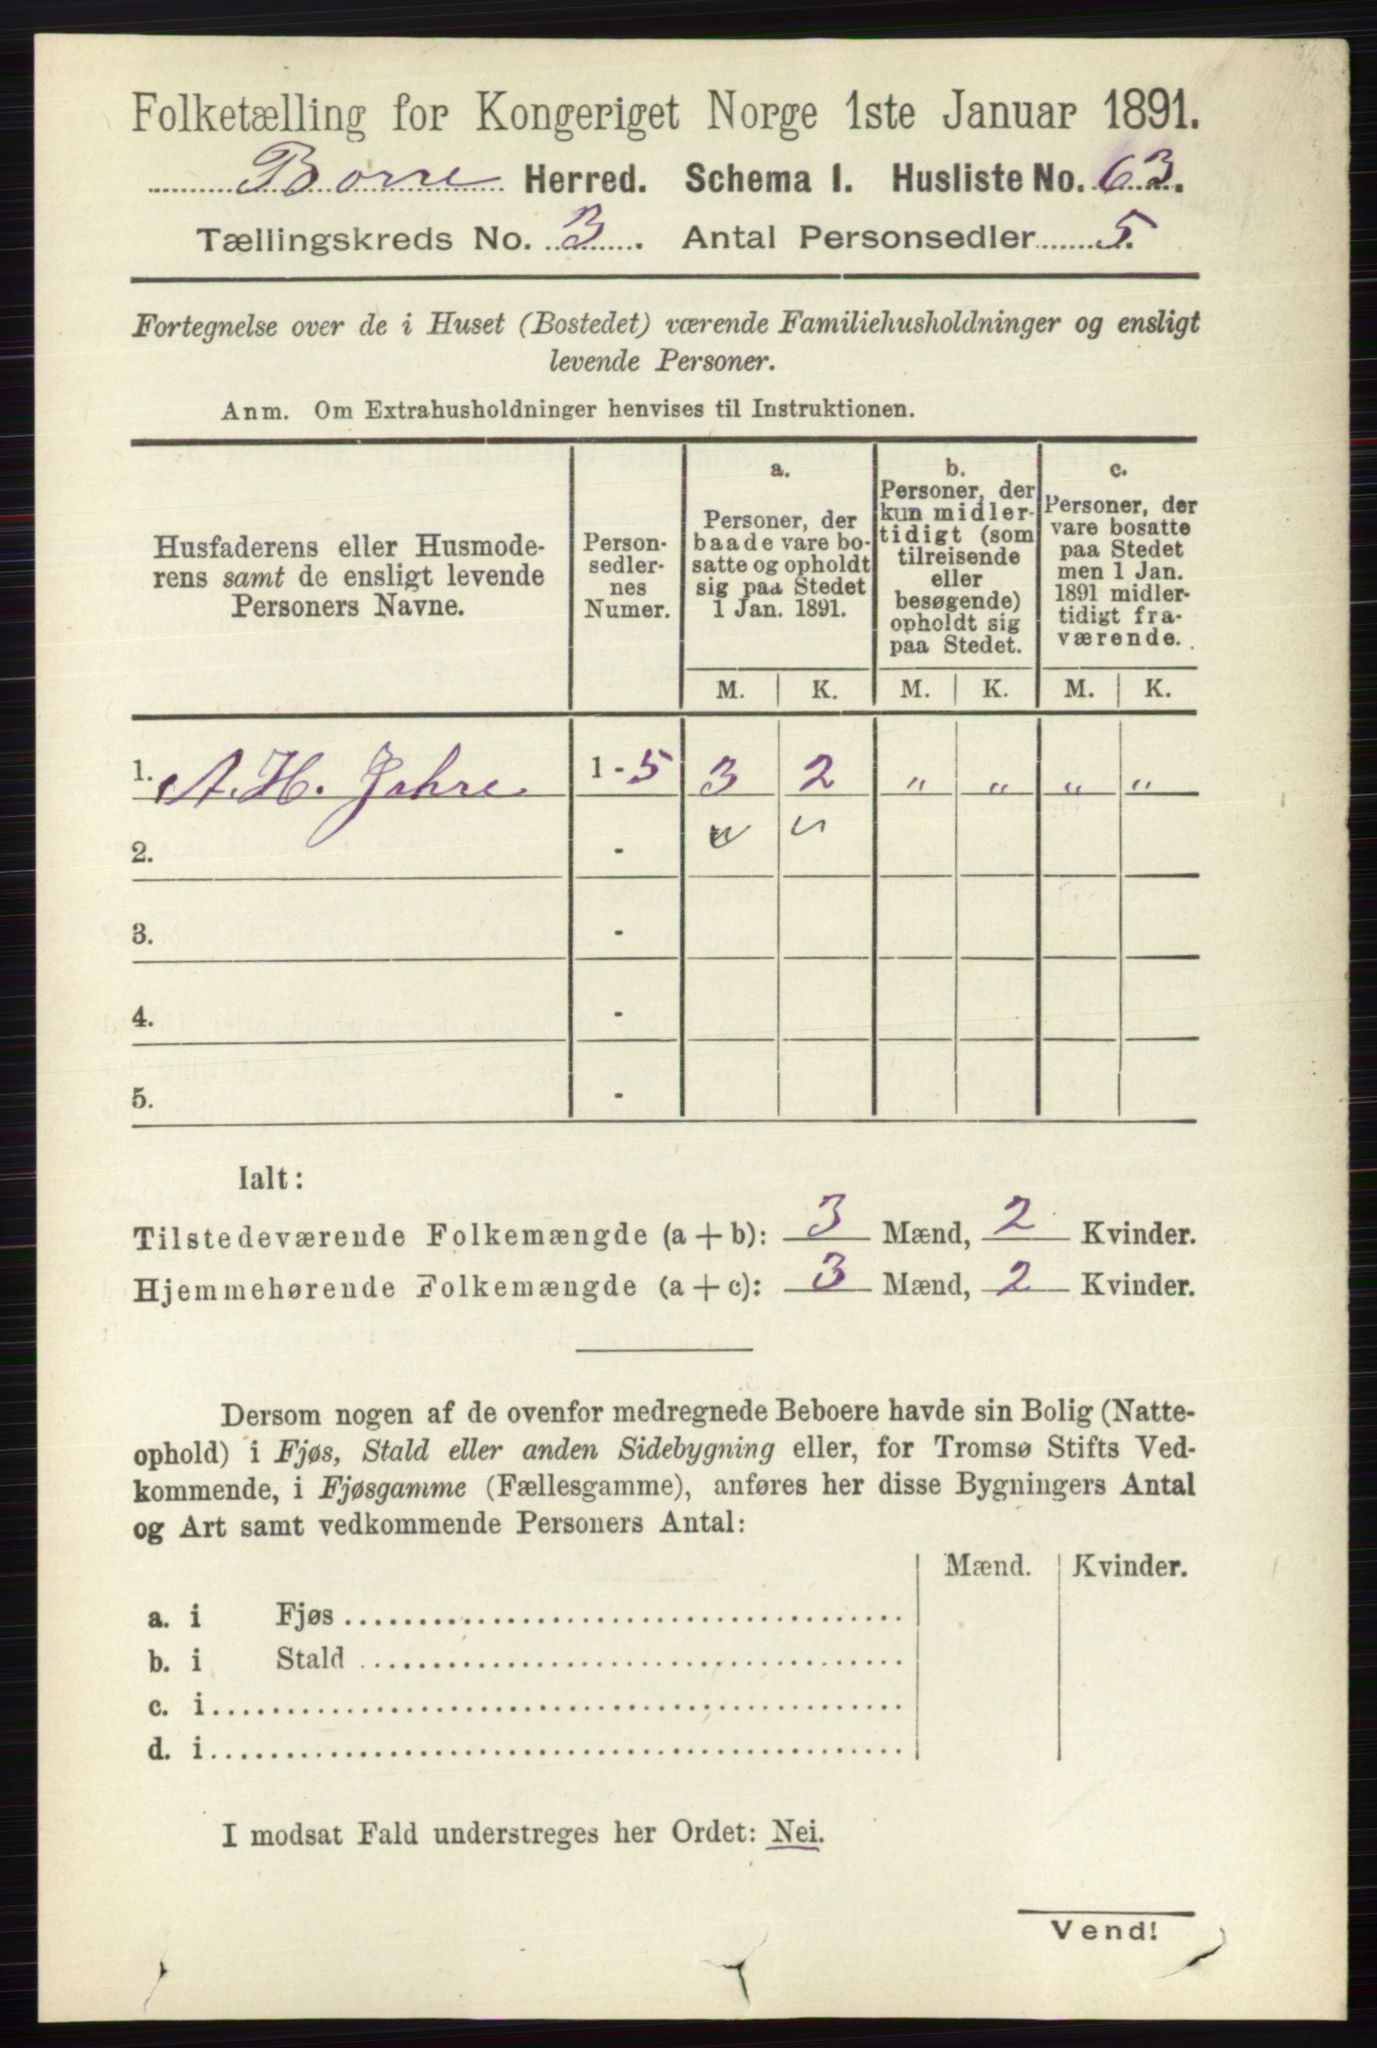 Folketælling for Kongeriget Norge 1ste Januar 1891.
Borre Herred. Schema I. Husliste No. 63.
Tællingskreds No. 3. Antal Personsedler 5.
Fortegnelse over de i Huset (Bostedet) værende Familiehusholdninger og ensligt
levende Personer.
Anm. Om Extrahusholdninger henvises til Instruktionen.
Husfaderens eller Husmode-
rens samt de ensligt levende
Personers Navne.
Person-
sedler-
nes
Numer.
a.
Personer, der
baade vare bo-
satte og opholdt
sig paa Stedet
1 Jan. 1891.
b.
Personer, der
kun midler-
tidigt (som
tilreisende
eller
besøgende)
opholdt sig
paa Stedet.
c.
Personer, der
vare bosatte
paa Stedet
men 1 Jan.
1891 midler-
tidigt fra-
værende.
M. K. M. K. M. K.
1. A. H. Jahre 1 - 5 3 2 " " " "
2. -
3. -
4. -
5. -
Ialt:
Tilstedeværende Folkemængde (a + b): 3 Mænd, 2 Kvinder.
Hjemmehørende Folkemængde (a + c): 3 Mænd, 2 Kvinder.
Dersom nogen af de ovenfor medregnede Beboere havde sin Bolig (Natte-
ophold) i Fjøs, Stald eller anden Sidebygning eller, for Tromsø Stifts Ved-
kommende, i Fjøsgamme (Fællesgamme), anføres her disse Bygningers Antal
og Art samt vedkommende Personers Antal:
Mænd. Kvinder.
a. i Fjøs
b. i Stald
c. i
d. i
I modsat Fald understreges her Ordet: Nei.
Vend!